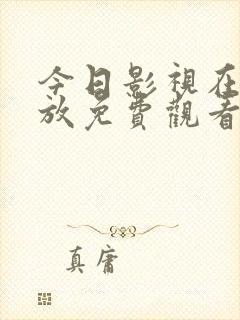 今日影視在
放免費觀看
真庸